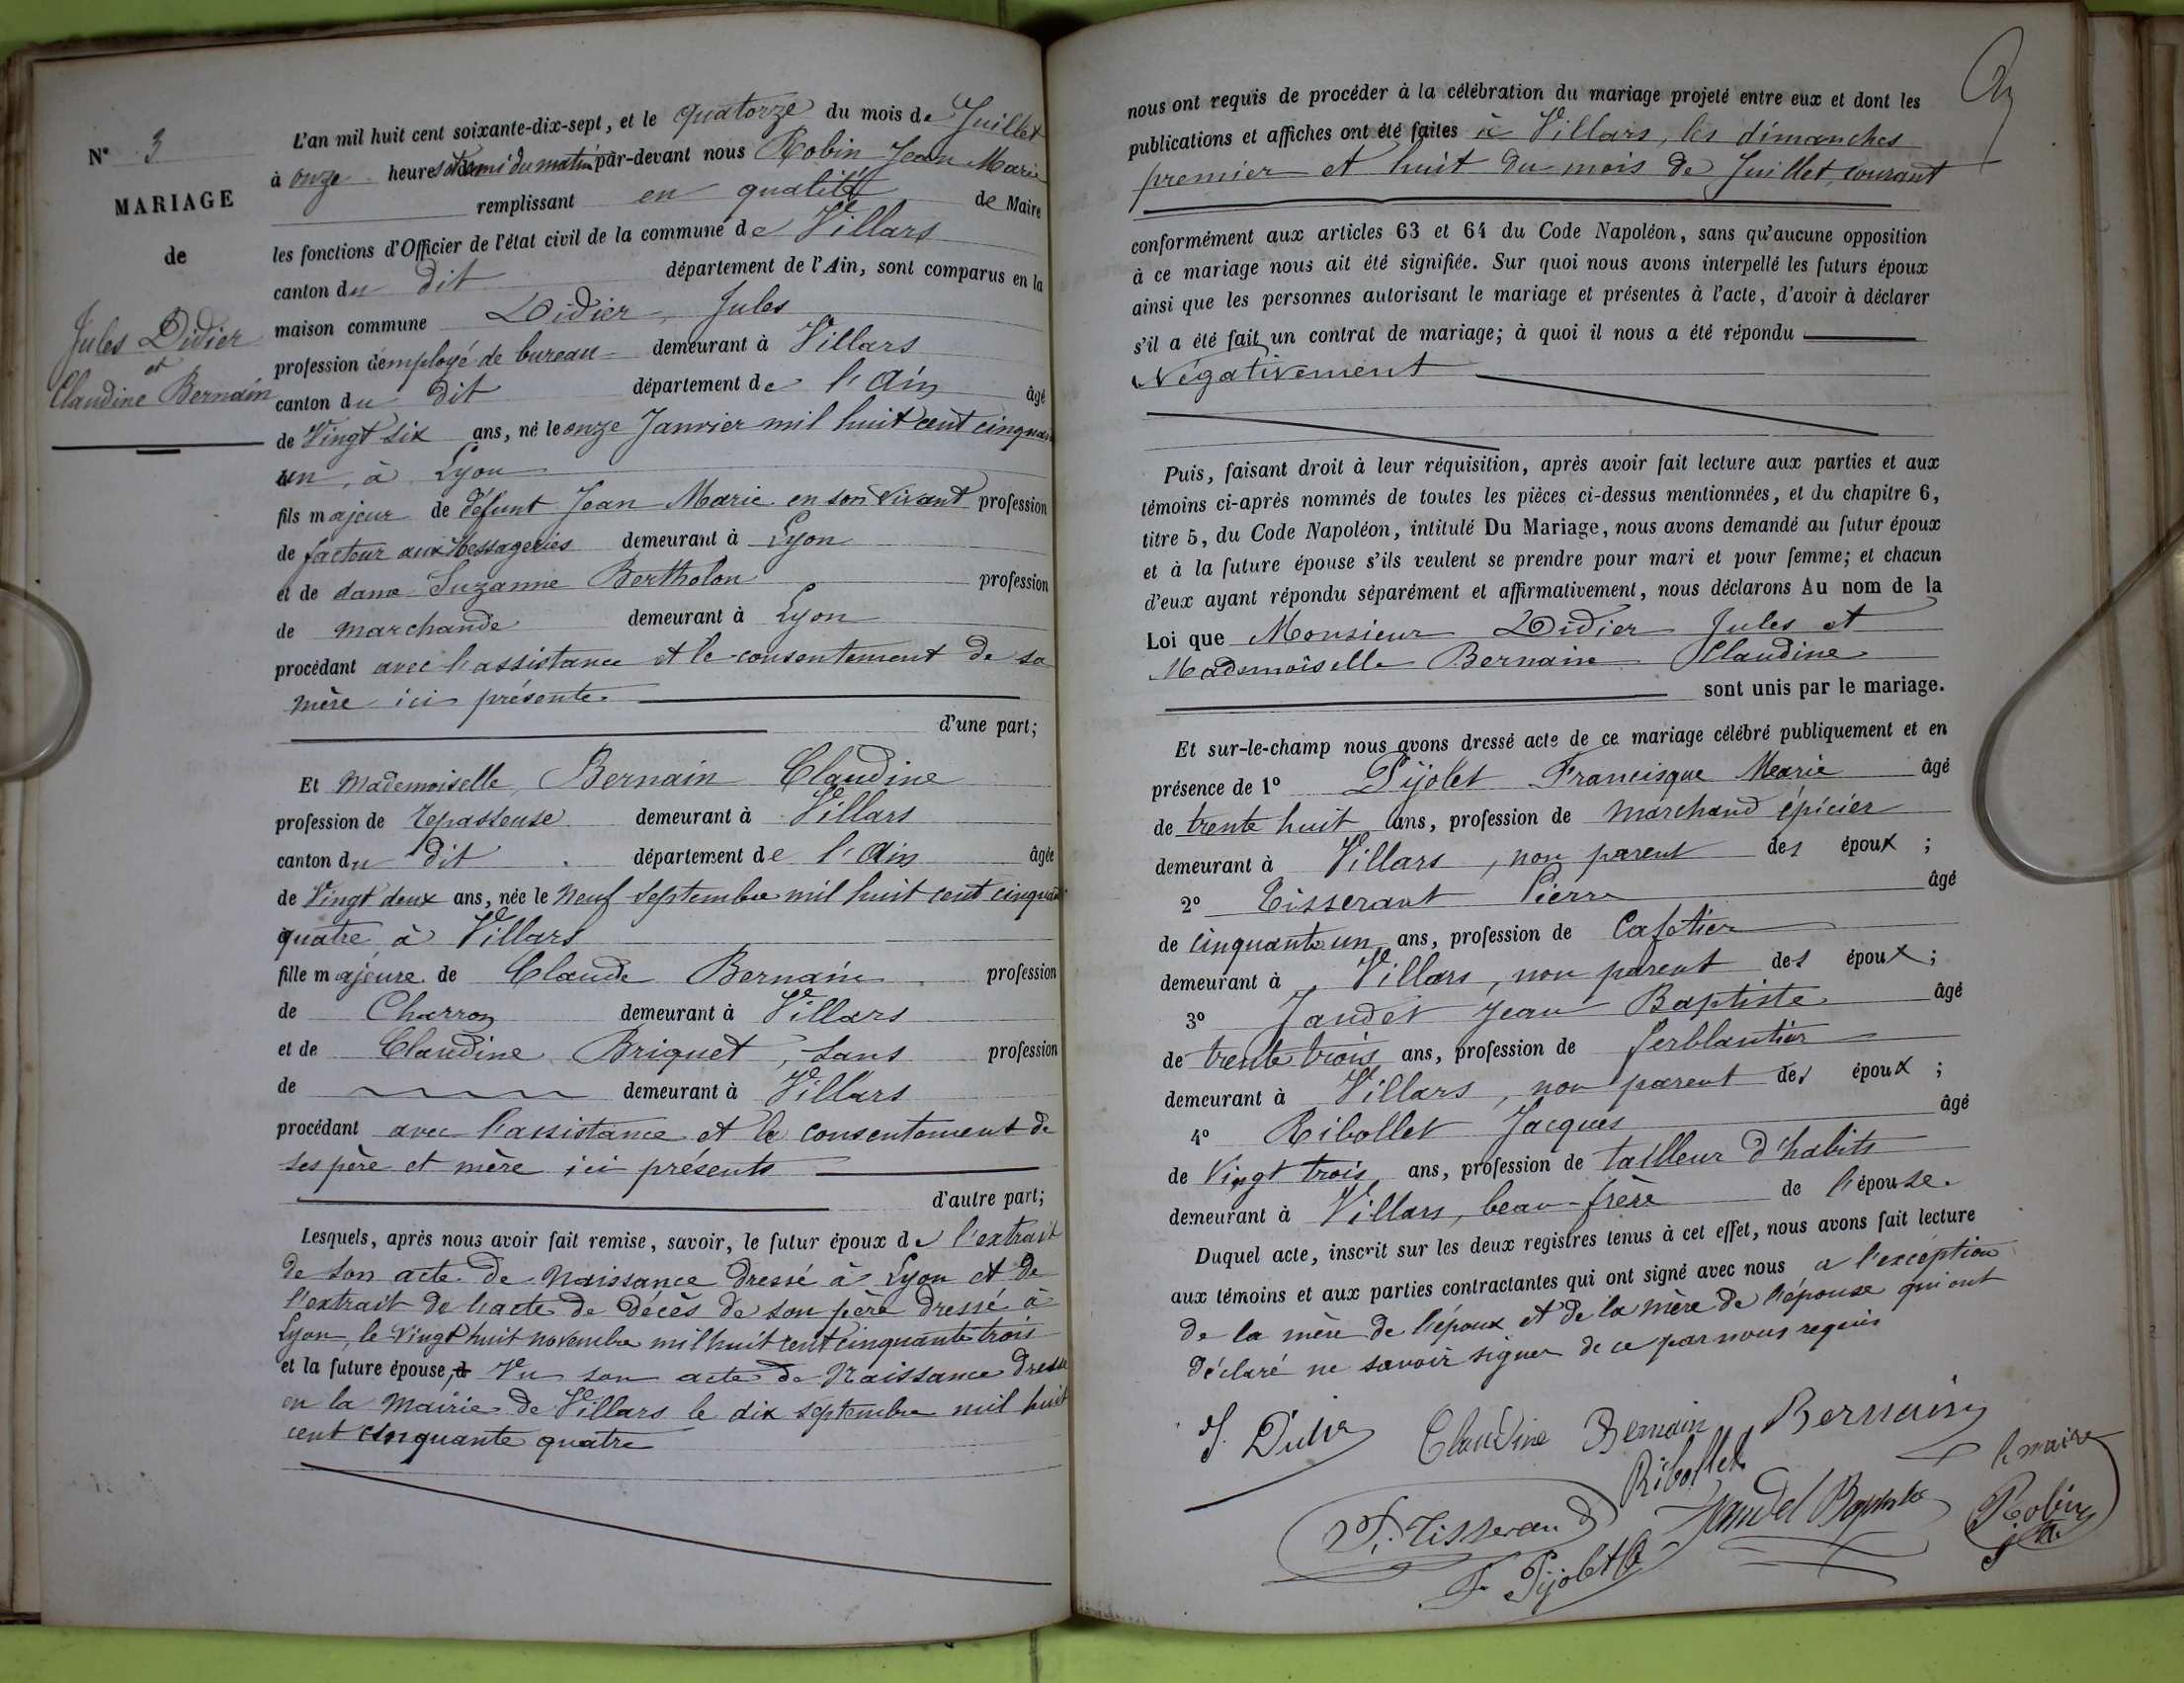 N° 3
MARIAGE
de
Jules Didier
et
Claudine Bernain
L'an mil huit cent soixante-dix-sept, et le quatorze du mois de Juillet
à onze heures et demi du matin par-devant nous Robin Jean Marie
remplissant en qualité de Maire
les fonctions d'Officier de l'état civil de la commune de Villars
canton du dit département de l'Ain, sont comparus en la
maison commune Didier Jules
profession d'employé de bureau demeurant à Villars
canton du dit département de l'Ain âgé
de Vingt six ans, né le onze Janvier mil huit cent cinquante
un, à Lyon
fils majeur de défunt Jean Marie en son vivant profession
de facteur aux Messageries demeurant à Lyon
et de dame Suzanne Bertholon profession
de marchande demeurant à Lyon
procédant avec l'assistance et le consentement de sa
mère ici présente
d'une part;
Et Mademoiselle Bernain Claudine
profession de repasseuse demeurant à Villars
canton du dit département de l'Ain âgée
de Vingt deux ans, née le neuf Septembre mil huit cent cinquante
quatre à Villars
fille majeure de Claude Bernain profession
de Charron demeurant à Villars
et de Claudine Briquet, sans profession
de demeurant à Villars
procédant avec l'assistance et le consentement de
ses père et mère ici présents
d'autre part;
Lesquels, après nous avoir fait remise, savoir, le futur époux de l'extrait
de son acte de Naissance dressé à Lyon et de
l'extrait de l'acte de décès de son père dressé à
Lyon, le Vingt huit novembre mil huit cent cinquante trois
et la future épouse, Vu son acte de Naissance dressé
en la Mairie de Villars le dix septembre mil huit
cent cinquante quatre
nous ont requis de procéder à la célébration du mariage projeté entre eux et dont les
publications et affiches ont été faites à Villars, les dimanches
premier et huit du mois de Juillet courant
conformément aux articles 63 et 64 du Code Napoléon, sans qu'aucune opposition
à ce mariage nous ait été signifiée. Sur quoi nous avons interpellé les futurs époux
ainsi que les personnes autorisant le mariage et présentes à l'acte, d'avoir à déclarer
s'il a été fait un contrat de mariage; à quoi il nous a été répondu
Négativement
Puis, faisant droit à leur réquisition, après avoir fait lecture aux parties et aux
témoins ci-après nommés de toutes les pièces ci-dessus mentionnées, et du chapitre 6,
titre 5, du Code Napoléon, intitulé Du Mariage, nous avons demandé au futur époux
et à la future épouse s'ils veulent se prendre pour mari et pour femme; et chacun
d'eux ayant répondu séparément et affirmativement, nous déclarons Au nom de la
Loi que Monsieur Didier Jules et
Mademoiselle Bernain Claudine
sont unis par le mariage.
Et sur-le-champ nous avons dressé acte de ce mariage célébré publiquement et en
présence de 1° Pijolet Francisque Marie âgé
de trente huit ans, profession de Marchand épicier
demeurant à Villars, non parent des époux ;
2° Tisserant Pierre âgé
de cinquante un ans, profession de Cafetier
demeurant à Villars, non parent des époux ;
3° Jandet Jean Baptiste âgé
de trente trois ans, profession de ferblantier
demeurant à Villars, non parent des époux ;
4° Ribollet Jacques âgé
de Vingt trois ans, profession de tailleur d'habits
demeurant à Villars, beau-frère de l'épouse.
Duquel acte, inscrit sur les deux registres tenus à cet effet, nous avons fait lecture
aux témoins et aux parties contractantes qui ont signé avec nous a l'exception
de la mère de l'époux et de la mère de l'épouse qui ont
déclaré ne savoir signer de ce par nous requis
J. Didier Claudine Bernain Bernain
Ribollet le maire
P. Tisserand Jandet Baptiste Robin
F. Pijolet